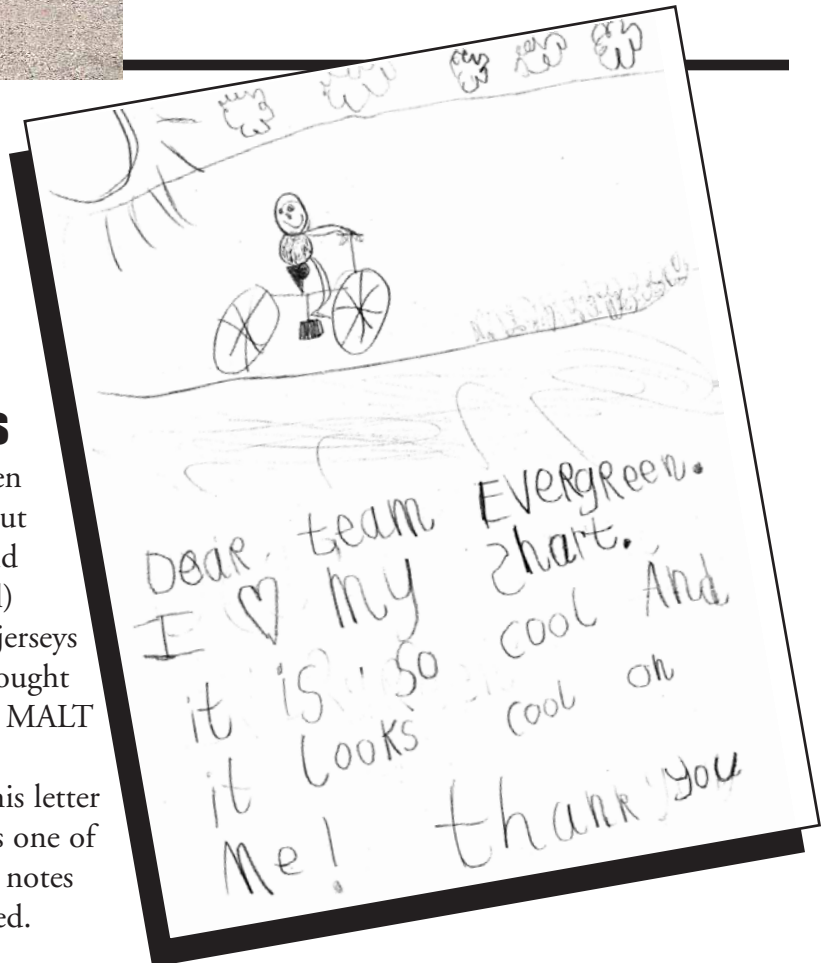 s
en
ut
d
l)
jerseys
ought
MALT
his letter
s one of
notes
ed.
Dear team EVeRgReen.
I ♡ my Shart.
it is so cool And
it Looks cool on
Me! thank you